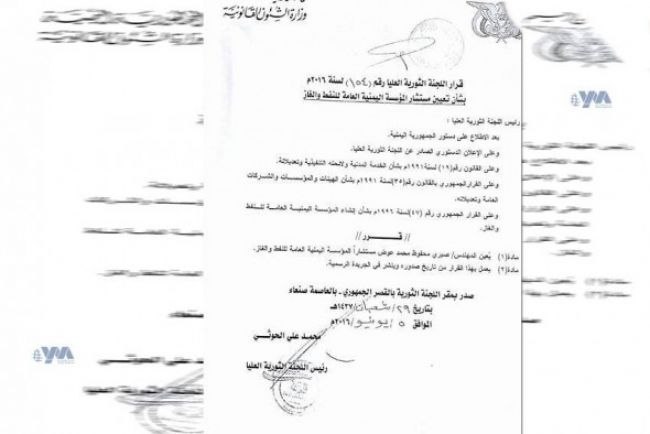 وزارة الشئون القانونية
قرار اللجنة الثورية العليا رقم (١٥٤) لسنة ٢٠١٦م
بشأن تعيين مستشار المؤسسة اليمنية العامة للنفط والغاز
رئيس اللجنة الثورية العليا :
بعد الاطلاع على دستور الجمهورية اليمنية.
وعلى الإعلان الدستوري الصادر عن اللجنة الثورية العليا.
وعلى القانون رقم (١٩) لسنة ١٩٩١م بشأن الخدمة المدنية ولائحته التنفيذية وتعديلاته.
وعلى القرار الجمهوري بالقانون رقم (٣٥) لسنة ١٩٩١م بشأن الهيئات والمؤسسات والشركات
العامة وتعديلاته.
وعلى القرار الجمهوري رقم (٤٧) لسنة ١٩٩٦م بشأن إنشاء المؤسسة اليمنية العامة للنفط
والغاز.
// قـــرر //
مادة (١) يُعين المهندس/ صبري محفوظ محمد عوض مستشاراً المؤسسة اليمنية العامة للنفط والغاز.
مادة (٢) يعمل بهذا القرار من تاريخ صدوره وينشر في الجريدة الرسمية.
صدر بمقر اللجنة الثورية بالقصر الجمهوري - بالعاصمة صنعاء
بتاريخ ٢٩/ شعبان/ ١٤٣٧هـ
الموافق ٥/ يونيو/ ٢٠١٦م
محمد علي الحوثي
رئيس اللجنة الثورية العليا
YM
YM